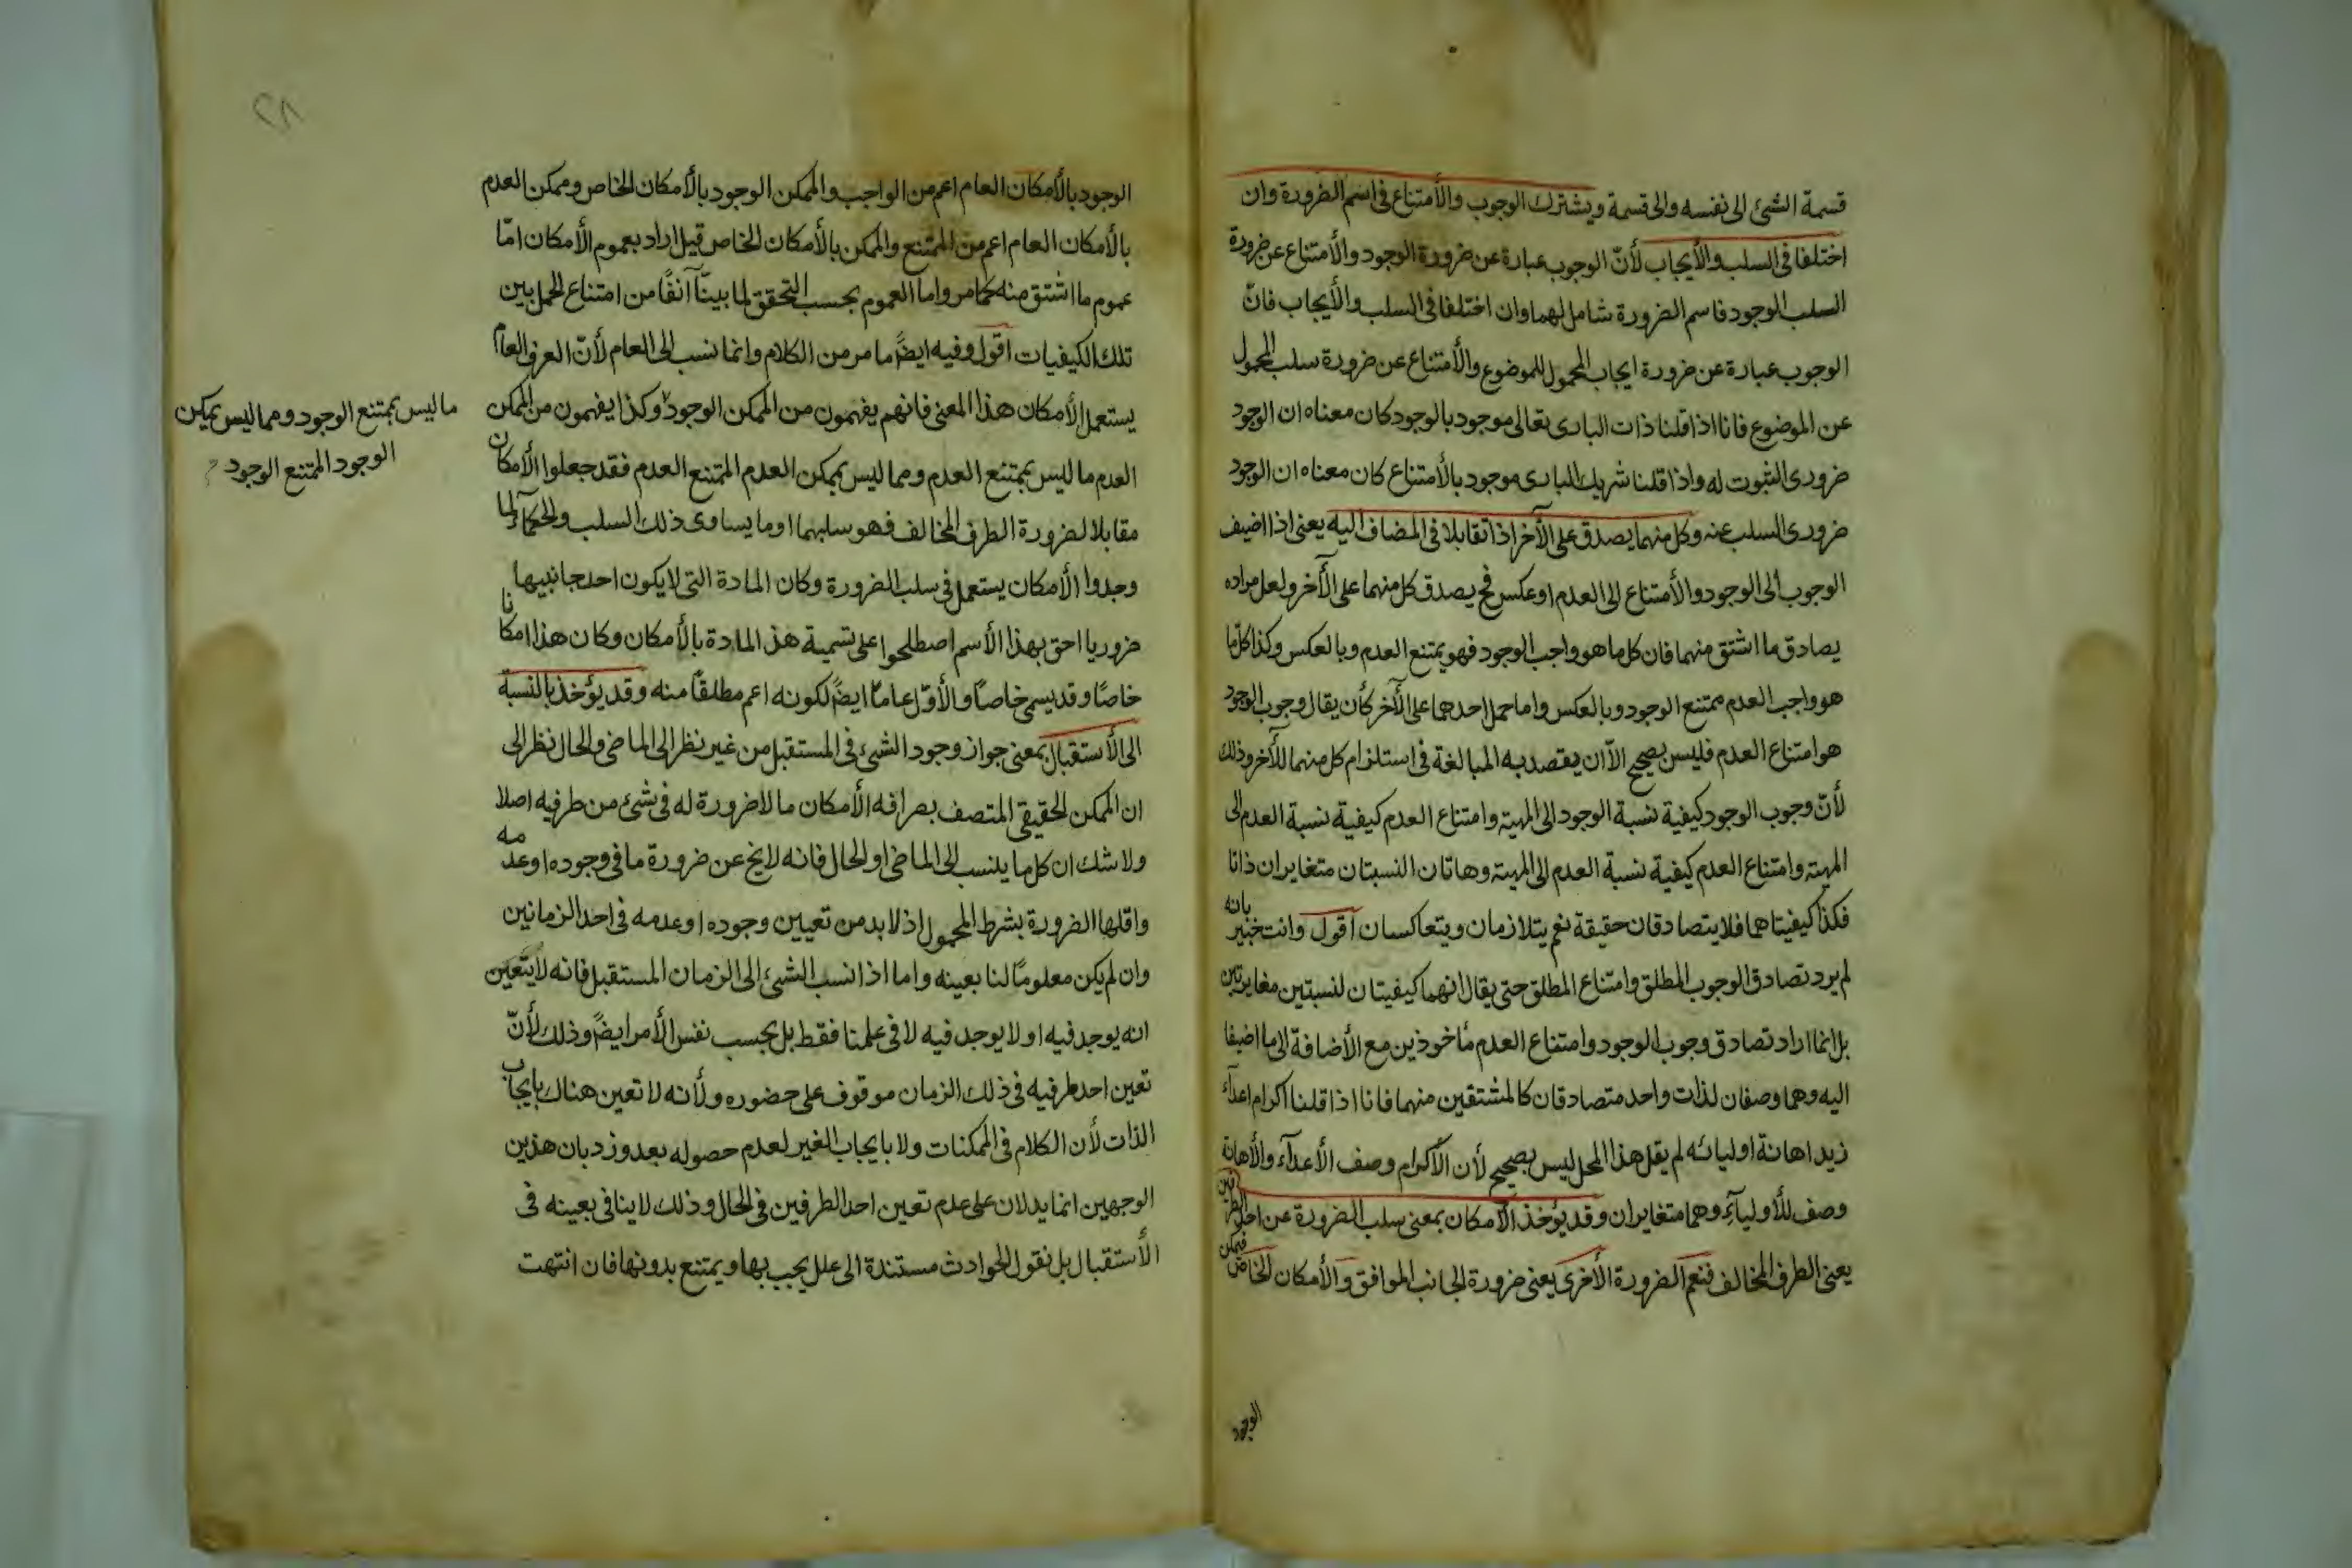 قسمة الشئ الى نفسه والى قسمة ويشترك الوجوب والأمتناع فى اسم الضرورة وان
اختلفا فى السلب والأيجاب لأنّ الوجوب عبارة عن ضرورة الوجود والأمتناع عن ضرورة
السلب الوجود فاسم الضرورة شامل لهما وان اختلفا فى السلب والأيجاب فانّ
الوجوب عبارة عن ضرورة ايجاب المحمول للموضوع والأمتناع عن ضرورة سلب المحمول
عن الموضوع فانا اذا قلنا ذات البارى تعالى موجود بالوجود كان معناه ان الوجود
ضرورى الثبوت له واذا قلنا شريك البارى موجود بالأمتناع كان معناه ان الوجود
ضرورى السلب عنه وكل منهما يصدق على الآخر اذا تقابلا فى المضاف اليه يعنى اذا اضيف
الوجوب الى الوجود والأمتناع الى العدم او عكس فح يصدق كل منهما على الآخر ولعل مراده
يصادق ما اشتق منهما فان كل ما هو واجب الوجود فهو يمتنع العدم وبالعكس وكذا كل ما
هو واجب العدم ممتنع الوجود وبالعكس واما حمل احدهما على الآخر كأن يقال وجوب الوجود
هو امتناع العدم فليس بصحيح الاّ ان يقصد به المبالغة فى استلزام كل منهما للآخر وذلك
لأنّ وجوب الوجود كيفية نسبة الوجود الى المهية وامتناع العدم كيفية نسبة العدم الى
المهية وامتناع العدم كيفية نسبة العدم الى المهية وهاتان النسبتان متغايران ذاتا
فكذا كيفيتاهما فلا يتصادقان حقيقة نعم يتلازمان ويتعاكسان اقول وانت خبير بانه
لم يرد تصادق الوجوب المطلق وامتناع المطلق حتى يقال انهما كيفيتان لنسبتين مغايرتين
بل انما اراد تصادق وجوب الوجود وامتناع العدم مأخوذين مع الأضافة الى ما اضيفا
اليه وهما وصفان لذات واحد متصادقان كالمشتقين منهما فانا اذا قلنا اكرام اعدآء
زيد اهانة اوليائه لم يقل هذا المحل ليس بصحيح لأن الأكرام وصف الأعدآء والأهانة
وصف للأوليآء وهما متغايران وقد يؤخذ الأمكان بمعنى سلب الضرورة عن احد الطرفين
يعنى الطرف المخالف فتعم الضرورة الأخرى يعنى ضرورة الجانب الموافق والأمكان الخاص فممكن
الوجود
٢٨
الوجود بالأمكان العام اعم من الواجب والممكن الوجود بالأمكان الخاص وممكن العدم
بالأمكان العام اعم من الممتنع والممكن بالأمكان الخاص قيل اراد بعموم الأمكان امّا
عموم ما اشتق منه كما مر واما العموم بحسب التحقق لما بينّا آنفًا من امتناع الحمل بين
تلك الكيفيات اقول وفيه ايضًا ما مر من الكلام وانما نسب الى العام لأنّ العرف العام
يستعمل الأمكان هذا المعنى فانهم يفهمون من الممكن الوجود وكذا يفهمون من الممكن
ما ليس بممتنع الوجود ومما ليس بممكن
الوجود الممتنع الوجود
العدم ما ليس بممتنع العدم ومما ليس بممكن العدم الممتنع العدم فقد جعلوا الأمكان
مقابلا لضرورة الطرف المخالف فهو سلبهما او ما يساوى ذلك السلب والحكمآء لما
وجدوا الأمكان يستعمل فى سلب الضرورة وكان المادة التى لا يكون احد جانبيها
ضروريا احق بهذا الأسم اصطلحوا على تسمية هذ المادة بالأمكان وكان هذا امكانا
خاصًا وقد يسمى خاصًا والأوّل عامًا ايضًا لكونه اعم مطلقًا منه وقد يؤخذ بالنسبة
الى الأستقبال بمعنى جواز وجود الشئ فى المستقبل من غير نظر الى الماضى والحال نظر الى
ان الممكن الحقيقى المتصف بصرافه الأمكان ما لا ضرورة له فى شئ من طرفيه اصلا
ولا شك ان كل ما ينسب الى الماضى او الحال فانه لا يخ عن ضرورة ما فى وجوده او عدمه
واقلها الضرورة بشرط المحمول اذ لا بد من تعيين وجوده او عدمه فى احد الزمانين
وان لم يكن معلومًا لنا بعينه واما اذا نسب الشئ الى الزمان المستقبل فانه لا يتعين
انه يوجد فيه او لا يوجد فيه لا فى علمنا فقط بل بحسب نفس الأمر ايضًا وذلك لأنّ
تعين احد طرفيه فى ذلك الزمان موقوف على حضوره ولأنه لا تعين هناك بايجاب
الذات لأن الكلام فى الممكنات ولا بايجاب الغير لعدم حصوله بعد وزد بان هذين
الوجهين انما يدلان على عدم تعين احد الطرفين فى الحال وذلك لا ينافى بعينه فى
الأستقبال بل نقول الحوادث مستندة الى علل يجب بها ويمتنع بدونها فان انتهت